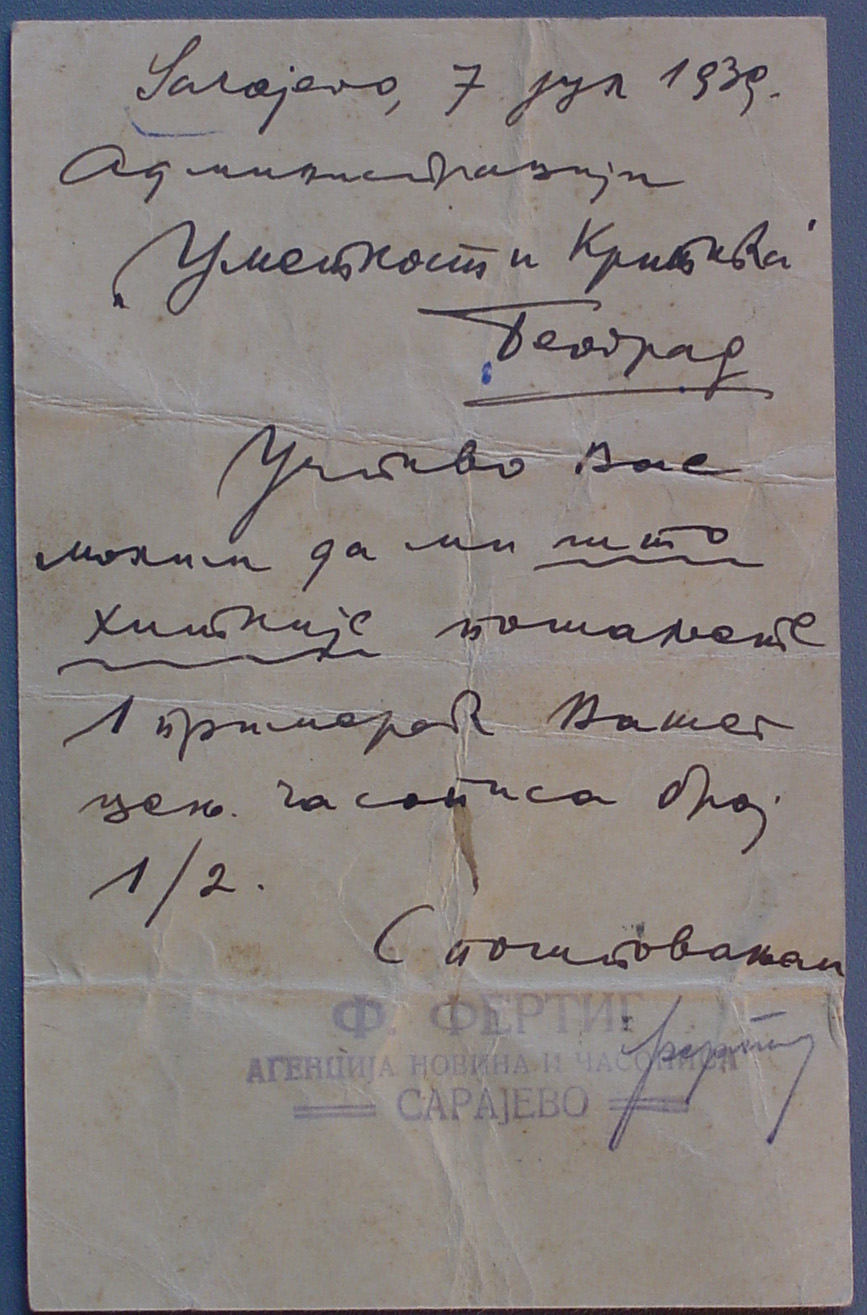 Sarajevo, 7 јул 1939.
Администрацији
„Уметност и Критика"
Београд
Учтиво Вас
молим да ми што
хитније пошаљете
1 примерак Вашег
цењ. часописа број
1/2.
С поштовањем
Ф. ФЕРТИГ
АГЕНЦИЈА НОВИНА И ЧАСОПИСА
САРАЈЕВО
Фертиг